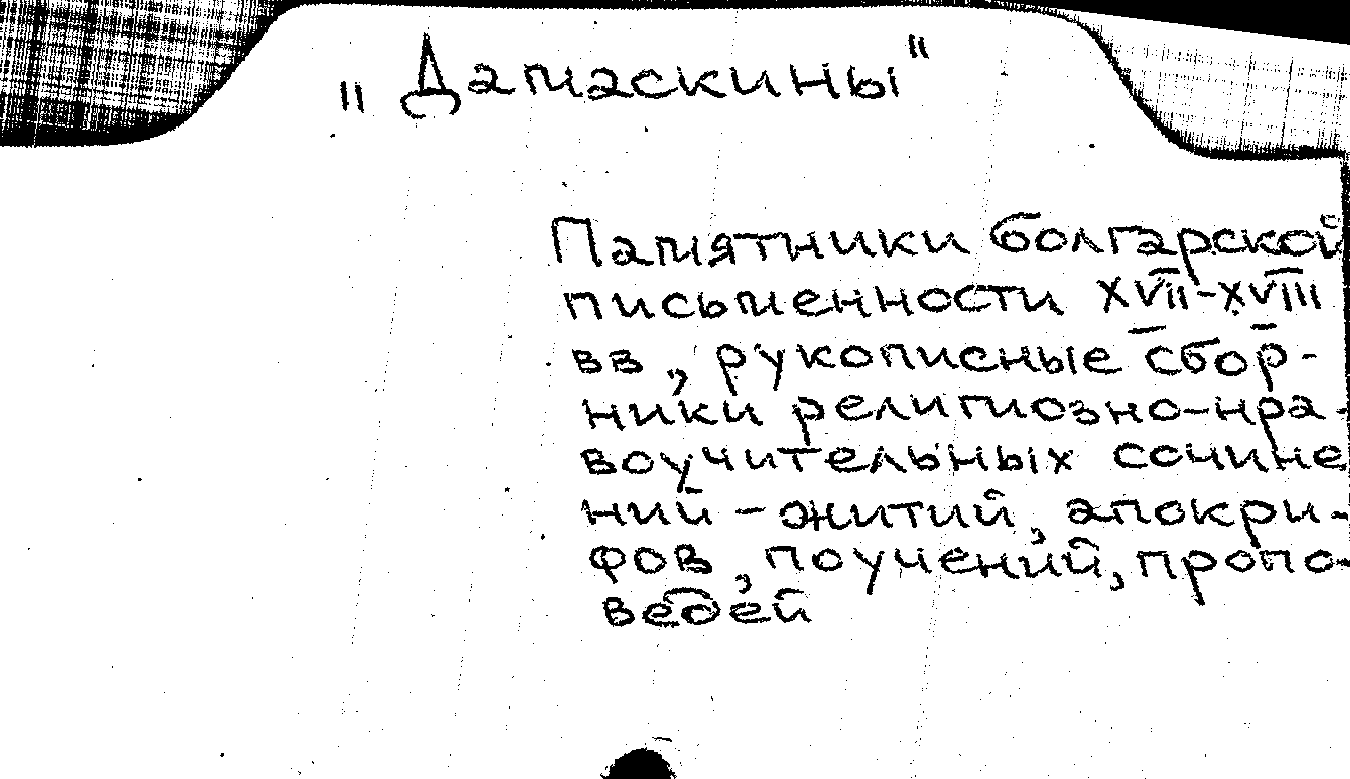 "Дамаскины"
Памятники болгарской
письменности XVII-XVIII
вв, рукописные сбор-
ники религиозно-нра-
воучительных сочине
ний - житий, апокри-
фов, поучений, пропо-
ведей